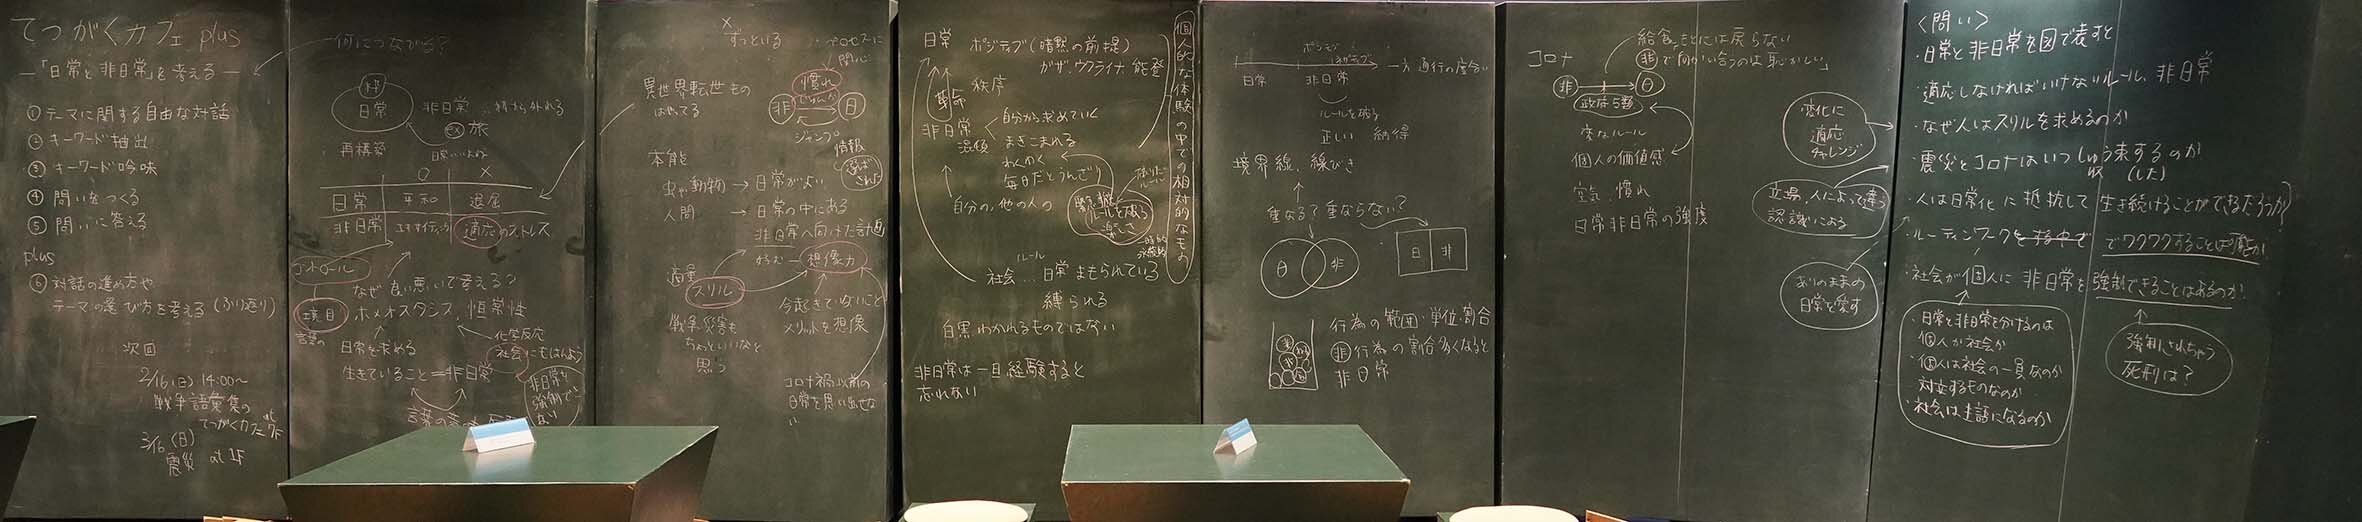 てつがくカフェ plus
―「日常と非日常」を考える―
① テーマに関する自由な対話
② キーワード抽出
③ キーワード吟味
④ 問いをつくる
⑤ 問いに答える
plus
⑥ 対話の進め方や
テーマの選び方を考える(ふり返り)
次回
2/16(日) 14:00~
戦争語彙集の
てつがくカフェ at 7F
3/16(日)
震災 at 1F
何につながる?
日常
非日常
ex 旅
再構築
○ ×
日常 平和 退屈
非日常 適応のストレス
コントロール
なぜ良い悪いで考える?
境目
ホメオスタシス, 恒常性
言葉の
化学反応
日常を求める
社会にもはんよう
生きていること=非日常
非日常を
強制でき
ない
×
ずっといる
・プロセスに
関心
異世界転生もの
はやってる
慣れ
非 日
ジャンプ
情報
本能
虫や動物 → 日常がよい
人間 → 日常の中にある
非日常へ向けた計画
好む ― 想像力
適量
スリル
今起きていないこと
メリットを想像
戦争, 災害も
ちょっといいなと
思う
コロナ禍以前の
日常を思い出せな
い
日常
ポジティブ(暗黙の前提)
ガザ, ウクライナ, 能登
秩序
革命
非日常
混沌
自分から求めていく
まきこまれる
わくわく
毎日だとうんざり
ルールを破る
楽しさ
自分の, 他の人の
一時的
永続的
ルール
社会…日常 まもられている
縛られる
白黒わかれるものではない
非日常は一旦経験すると
忘れない
個人的な体験の中での相対的なもの
ポジティブ
ネガティブ
日常 非日常 一方通行の度合い
ルールを破る
正しい 納得
境界線, 線びき
重なる? 重ならない?
日 非
日 非
行為の範囲・単位・割合
非 行為の割合多くなると
非日常
コロナ
給食もとには戻らない
非 で向かい合うのは恥かしい」
非 日
変なルール
個人の価値感
空気, 慣れ
日常非日常の強度
変化に
適応
チャレンジ
立場, 人によって違う
認識による
ありのままの
日常を愛す
<問い>
・日常と非日常を図で表すと
・適応しなければいけないルール, 非日常
・なぜ人はスリルを求めるのか
・震災とコロナはいつしゅう束するのか
収 (した)
・人は日常化に抵抗して生き続けることができるだろうか
・ルーティンワークでワクワクすることは可能か
・社会が個人に非日常を強制できることはあるのか
・日常と非日常を分けるのは
個人か社会か
・個人は社会の一員なのか
対立するものなのか
・社会は主語になるのか
強制されちゃう
死刑は?